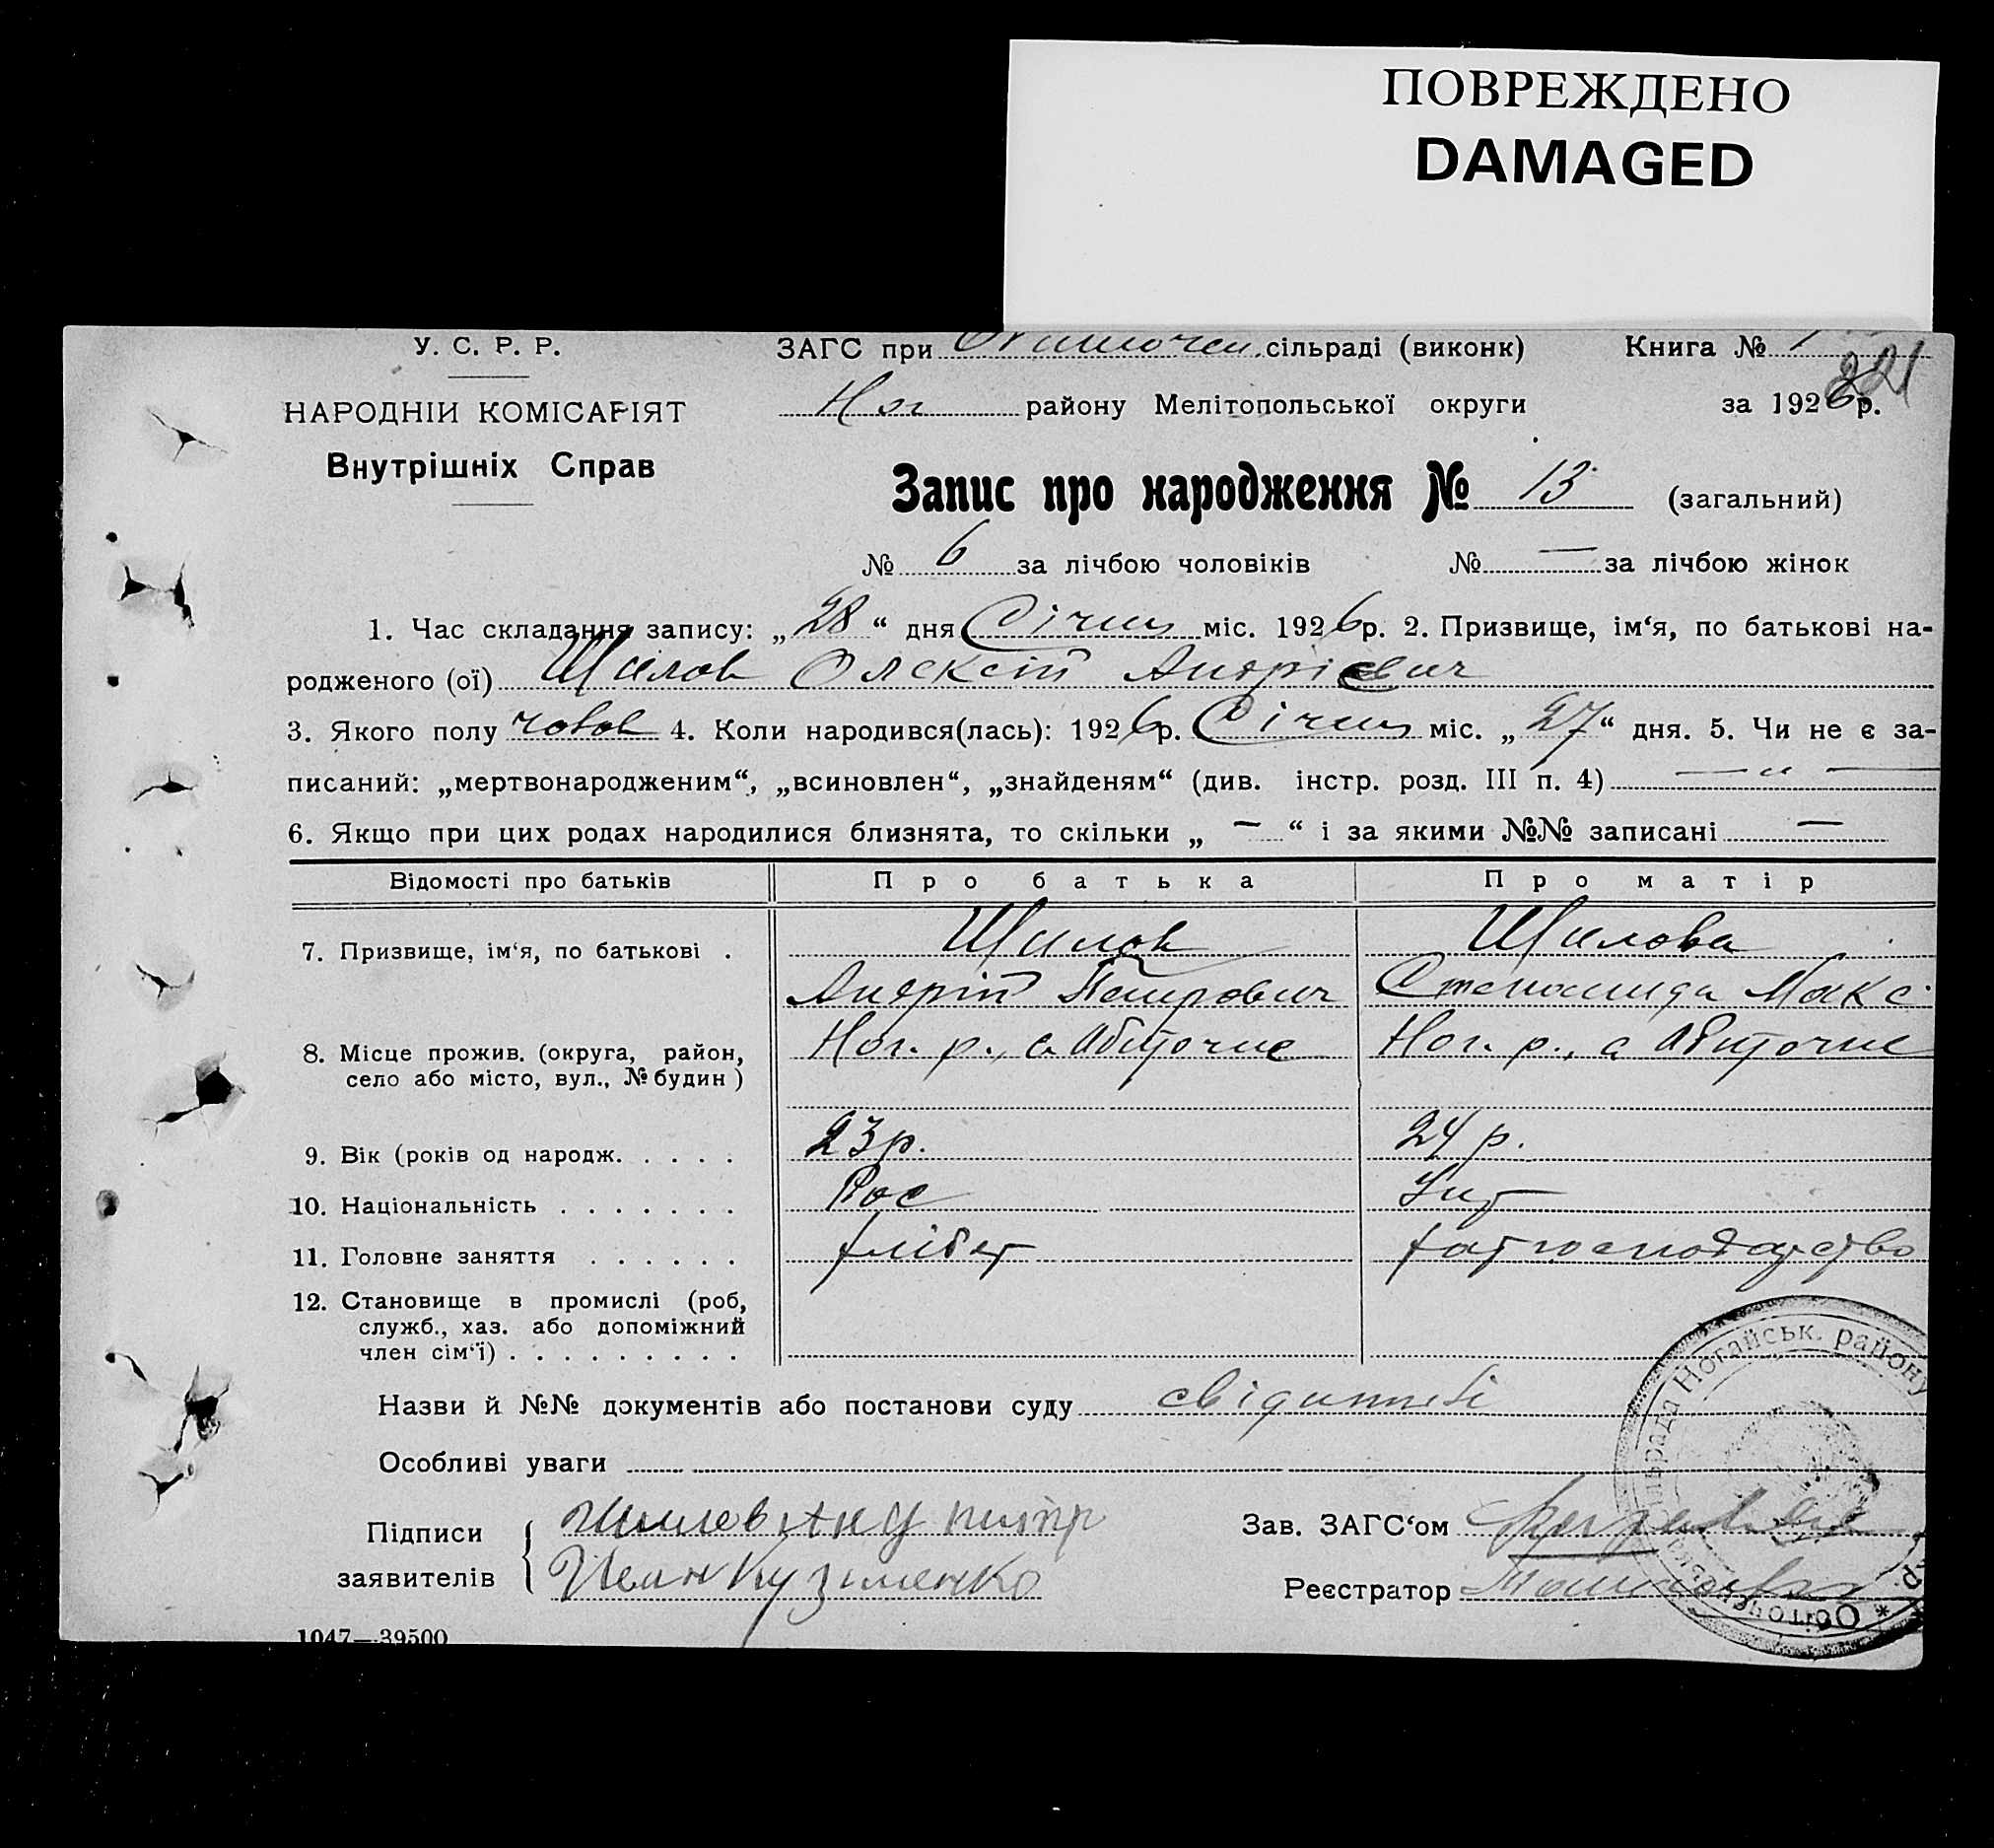 ПОВРЕЖДЕНО
DAMAGED
У. С. Р. Р.
ЗАГС при сільраді (виконк) Книга № 1
221
НАРОДНІЙ КОМІСАРІЯТ
Ног району Мелітопольської округи за 1926р.
Внутрішніх Справ
Запис про народження № 13 (загальний)
№ 6 за лічбою чоловіків № — за лічбою жінок
1. Час складання запису: „28“ дня Січня міс. 1926р. 2. Призвище, ім‘я, по батькові на-
родженого (ої) Шилов Олексій Андрієвич
3. Якого полу чолов 4. Коли народився(лась): 1926р. Січня міс. „27“ дня. 5. Чи не є за-
писаний: „мертвонародженим“, „всиновлен“, „знайденям“ (див. інстр. розд. III п. 4) — „ —
6. Якщо при цих родах народилися близнята, то скільки „ — “ і за якими №№ записані —
Відомості про батьків Про батька Про матір
7. Призвище, ім‘я, по батькові . Шилов Шилова
Андрій Петрович Степанида Макс.
8. Місце прожив. (округа, район, Ног. р., с Обиточне Ног. р., с Обиточне
село або місто, вул., № будин)
9. Вік (років од народж. . . . . 23р. 24 р.
10. Національність . . . . . . . Рос Укр
11. Головне заняття . . . . . . хлібор хатгосподарство
12. Становище в промислі (роб,
служб., хаз. або допоміжний
член сім‘ї) . . . . . . . . .
Назви й №№ документів або постанови суду
Особливі уваги
Підписи Шилов Анд
Зав. ЗАГС‘ом
заявителів Иван Кузименко
Реєстратор
Ногайськ. району
1047—39500